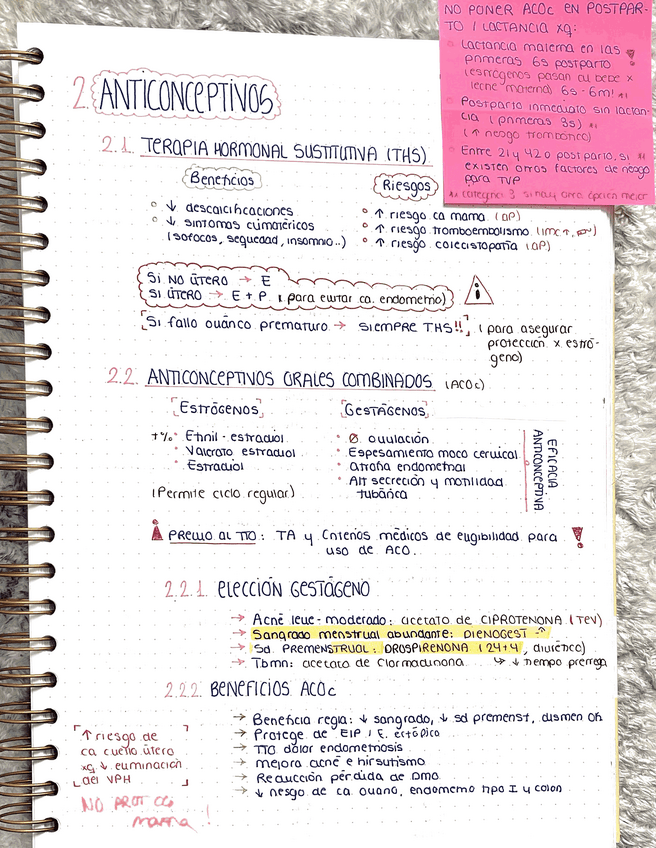 NO PONER ACOc EN POSTPAR-
TO / LACTANCIA xq:
Lactancia materna en las
primeras 6s postparto
(estrógenos pasan al bebe x
leche materna) 6s-6m! *1
Postparto inmediato sin lactan-
cia (primeras 3s) *1
(↑ riesgo trombótico)
Entre 21 y 42 d postparto, si
existen otros factores de riesgo
para TVP
*1 categoría 3 si hay otra opción mejor
2. ANTICONCEPTIVOS
2.1. TERAPIA HORMONAL SUSTITUTIVA (THS)
Beneficios
Riesgos
↓ descalcificaciones
↓ síntomas climatéricos
(sofocos, sequedad, insomnio..)
↑ riesgo ca mama (AP)
↑ riesgo tromboembolismo (IMC↑,
↑ riesgo colecistopatía (AP)
Si NO ÚTERO → E
Si ÚTERO → E + P (para evitar ca. endometrio)
Si fallo ovárico prematuro → SIEMPRE THS!!
(para asegurar
protección x estró-
geno)
2.2. ANTICONCEPTIVOS ORALES COMBINADOS (ACOc)
ESTRÓGENOS
+%· Etinil-estradiol
Valerato estradiol
Estradiol
(Permite ciclo regular)
GESTÁGENOS
Ø ovulación
Espesamiento moco cervical
Atrofia endometrial
Alt secreción y motilidad
tubárica
EFICACIA
ANTICONCEPTIVA
PREVIO AL TTO: TA y Criterios médicos de eligibilidad para
uso de ACO.
2.2.1. ELECCIÓN GESTÁGENO
→ Acné leve-moderado: acetato de CIPROTENONA (TEV)
→ Sangrado menstrual abundante: DIENOGEST
→ Sd. PREMENSTRUAL: DROSPIRENONA (24+4, diurético)
→ Tbmn: acetato de Clormadinona ↳ ↓ tiempo prerregla
2.2.2. BENEFICIOS ACOc
→ Beneficia regla: ↓ sangrado, ↓ sd premenst, dismen
→ Protege de EIP / E. ectópico
→ TTO dolor endometriosis
→ mejora acné e hirsutismo
→ Reducción pérdida de DMO
→ ↓ riesgo de ca. ovario, endometrio tipo I y colon
↑ riesgo de
ca cuello útero
xq ↓ eliminación
del VPH
NO PROT CA
mama!